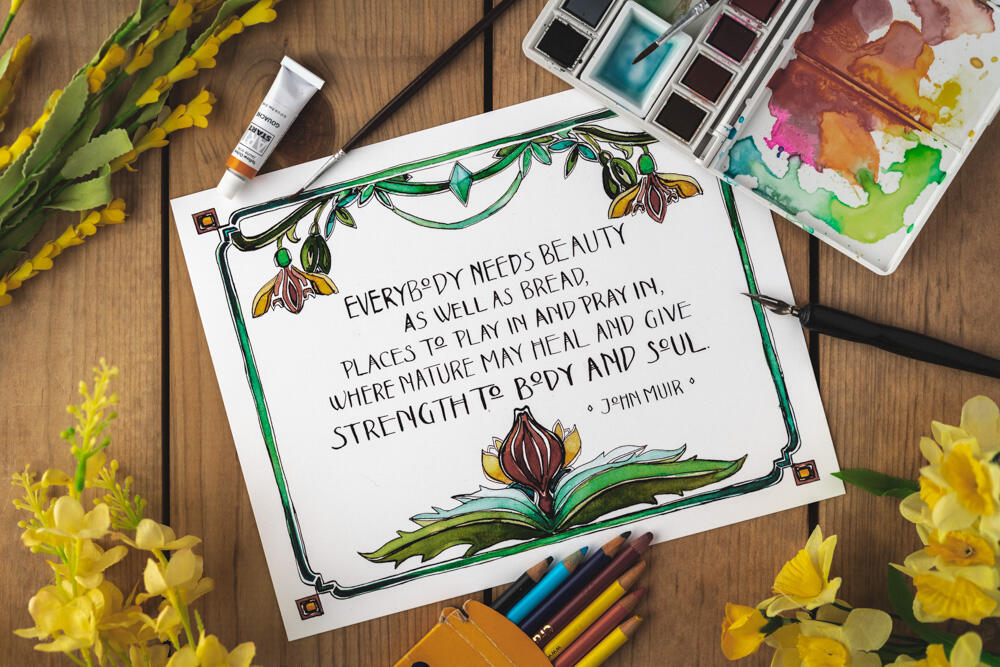 START
GOUACHE
EVERYBODY NEEDS BEAUTY
AS WELL AS BREAD,
PLACES TO PLAY IN AND PRAY IN,
WHERE NATURE MAY HEAL AND GIVE
STRENGTH TO BODY AND SOUL.
JOHN MUIR